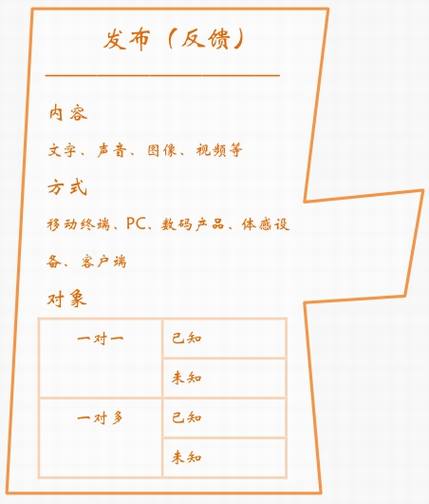 发布（反馈）
内容
文字、声音、图像、视频等
方式
移动终端、PC、数码产品、体感设
备、客户端
对象
一对一 已知
未知
一对多 已知
未知